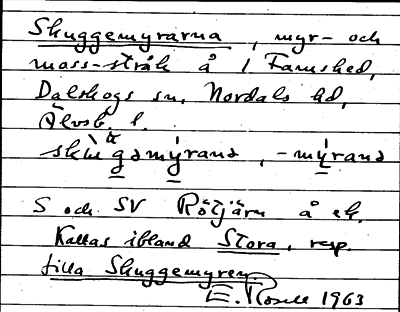 Skuggemyrarna, myr- och
mass-stråk å 1 Famshed,
Dalskogs sn, Nordals hd,
Älvsb. l.
skùgəmýrană, -mýrană
S och SV Rötjärn å ek.
Kallas ibland Stora, resp.
Lilla Skuggemyren
E. Rosell 1963